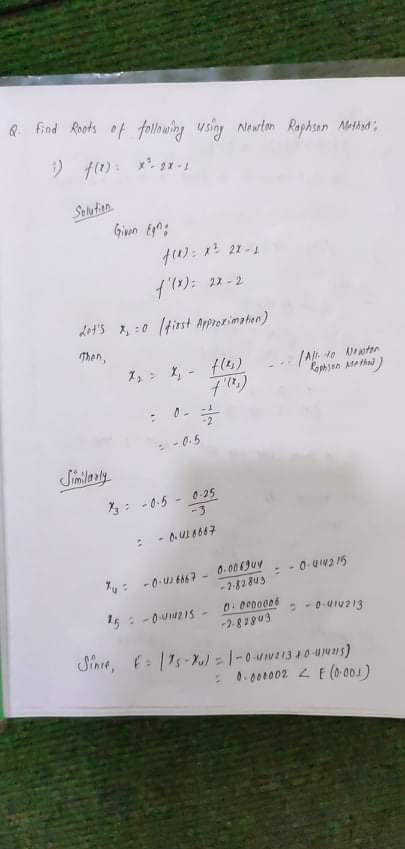 Q. Find Roots of following using Newton Raphson Method:
i) f(x) = x² - 2x - 1
Solution
Given Eqn:
f(x) = x² - 2x - 1
f'(x) = 2x - 2
Let's x₁ = 0 (first Approximation)
Then,
x₂ = x₁ - f(x₁) / f'(x₁) --- (Acc. to Newton Raphson Method)
= 0 - -1 / -2
= -0.5
Similarly
x₃ = -0.5 - 0.25 / -3
= -0.416667
x₄ = -0.416667 - 0.006944 / -2.82843 = -0.414215
x₅ = -0.414215 - 0.0000006 / -2.82843 = -0.414213
Since, E = |x₅ - x₄| = |-0.414213 + 0.414215|
= 0.000002 < E (0.001)